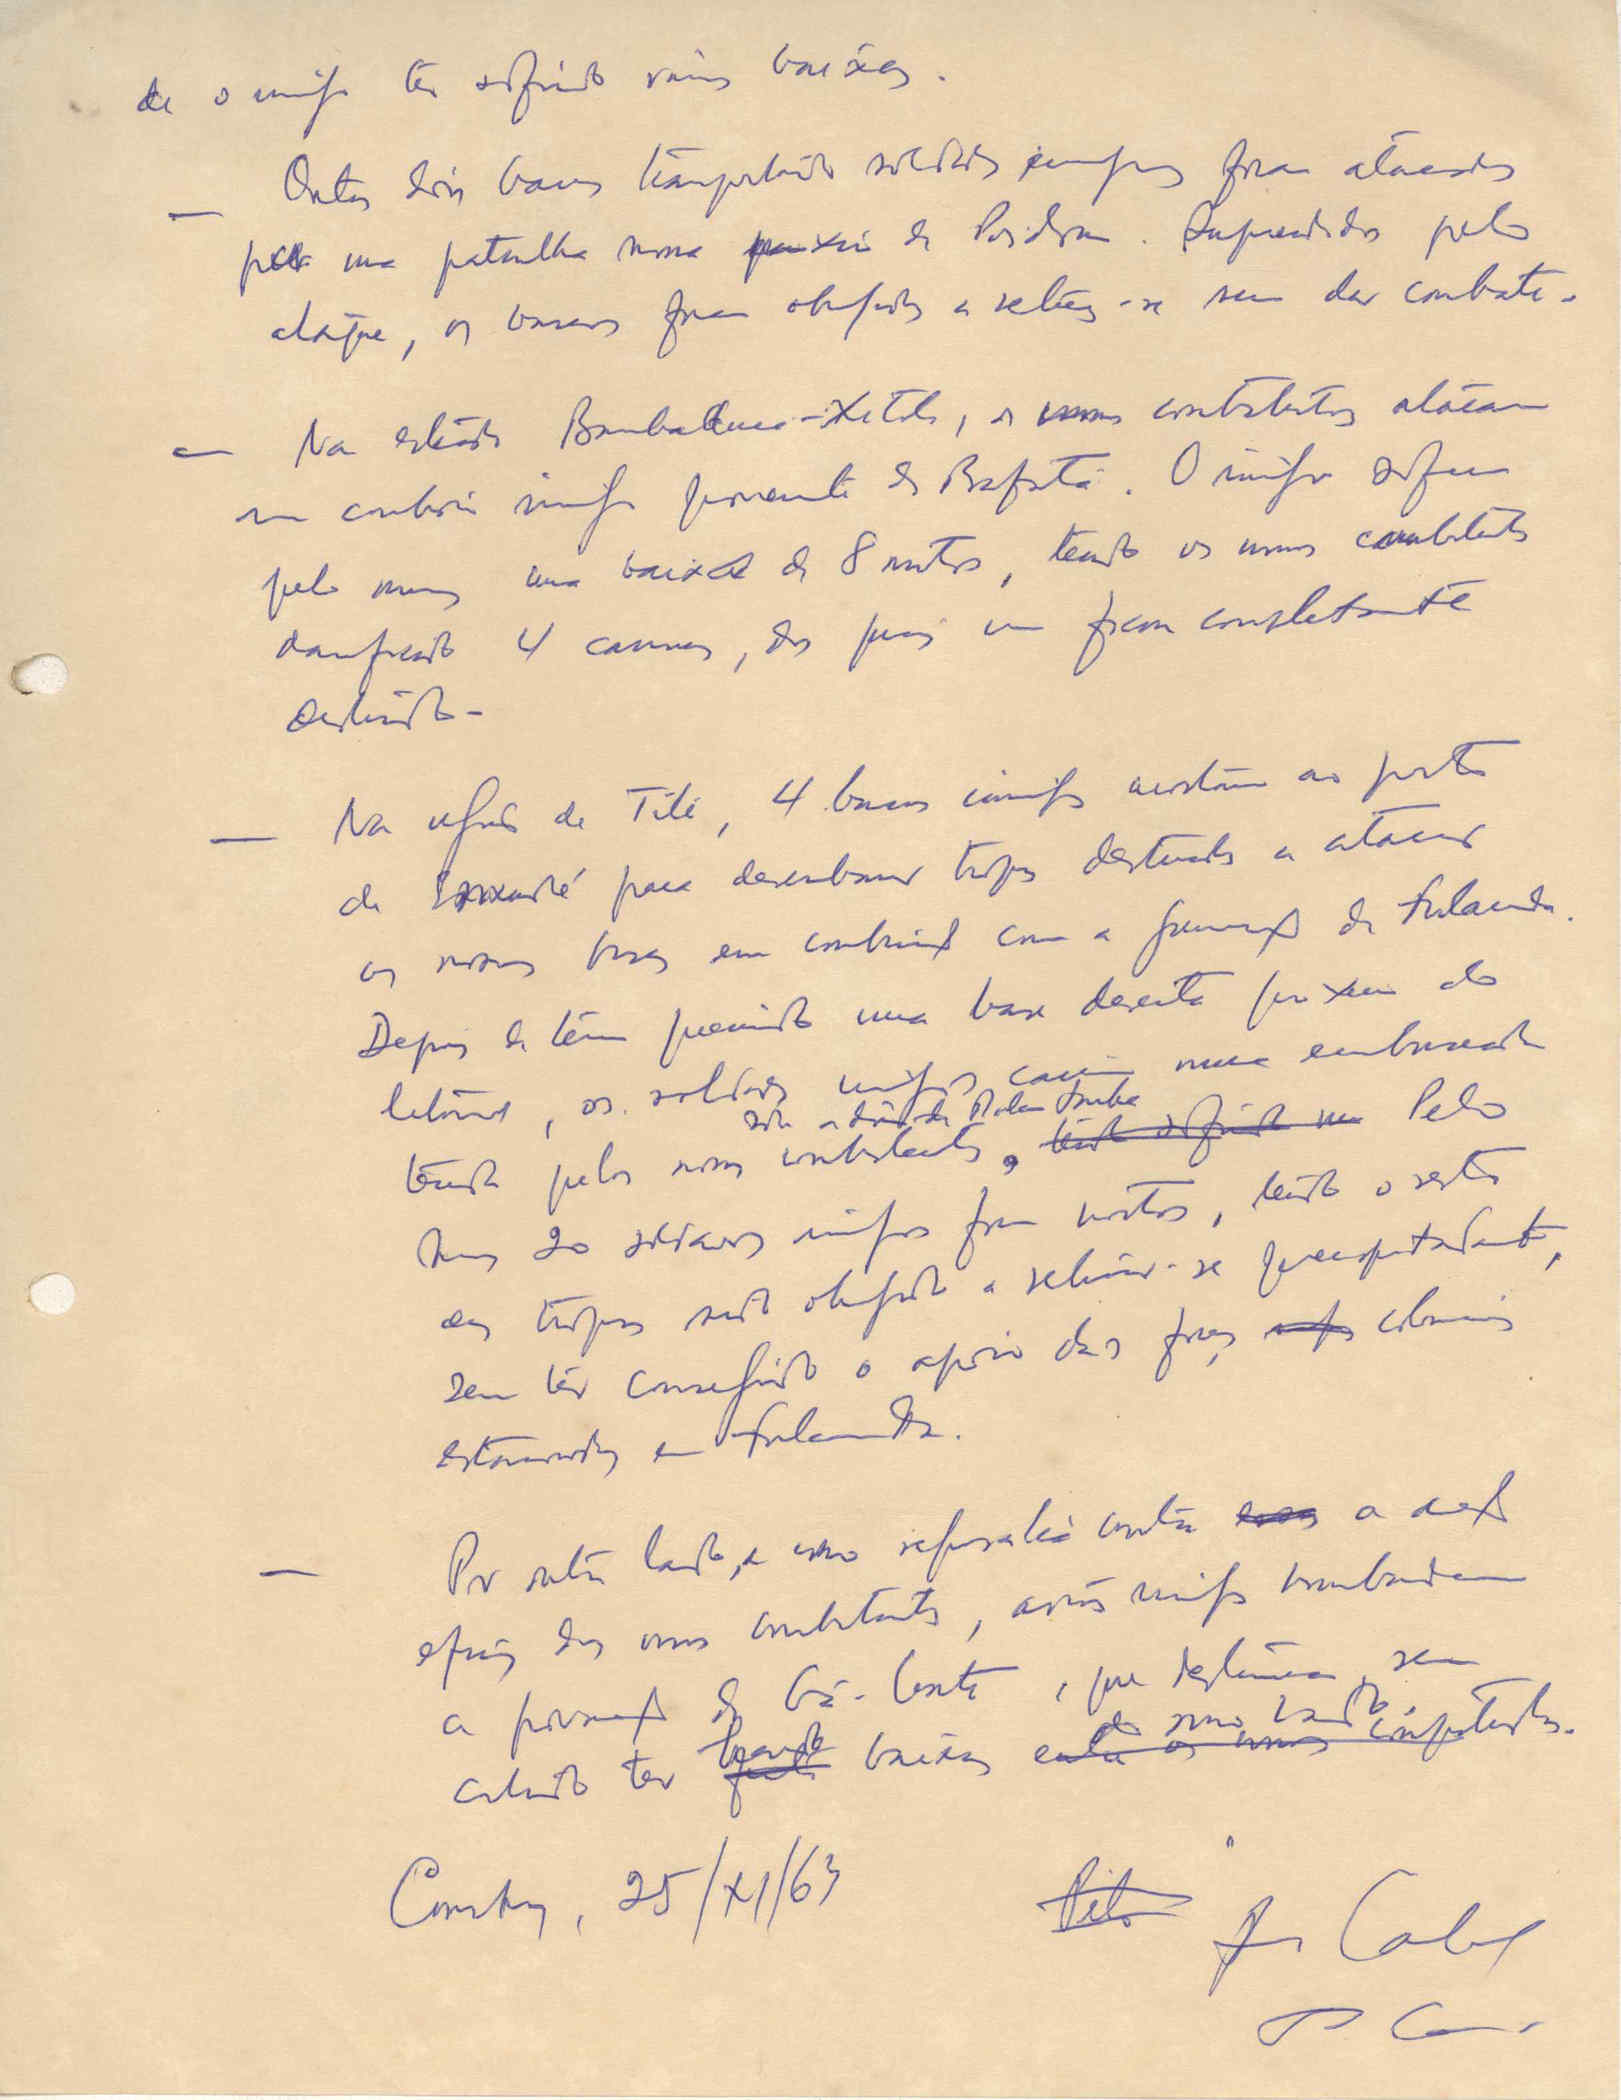 de o inimigo ter sofrido várias baixas.
— Outros dois barcos transportando soldados inimigos foram atacados
por uma patrulha nossa de Pordom. Surpreendidos pelo
ataque, os barcos foram obrigados a retirar-se sem dar combate.
— Na estrada Bambadinca-Xitole, os nossos combatentes atacaram
um comboio inimigo proveniente de Bafatá. O inimigo sofreu
pelo menos uma baixa de 8 mortos, tendo os nossos combatentes
danificado 4 camiões, dos quais um ficou completamente
destruído.
— Na região de Tite, 4 barcos inimigos acostaram ao porto
de para desembarcar tropas destinadas a atacar
as nossas bases em combinação com a guarnição de Fulacunda.
Depois de terem queimado uma base deserta próxima do
litoral, os soldados inimigos caíram numa emboscada
sob a direcção de
tendida pelos nossos combatentes, tendo sofrido Pelo
menos 20 soldados inimigos foram mortos, tendo o resto
das tropas sido obrigado a retirar-se precipitadamente,
sem ter conseguido o apoio das forças coloniais
estacionadas em Fulacunda.
— Por outro lado, e como represália contra a acção
eficaz dos nossos combatentes, aviões inimigos bombardearam
a povoação de que destruíram, sem
do nosso lado.
contudo ter baixas entre os nossos
Conakry, 25/XI/63
Pelo Cabral